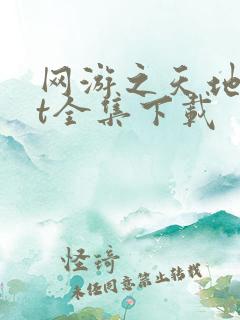 网游之天地
t全集下载
怪琦
未经同意禁止转载